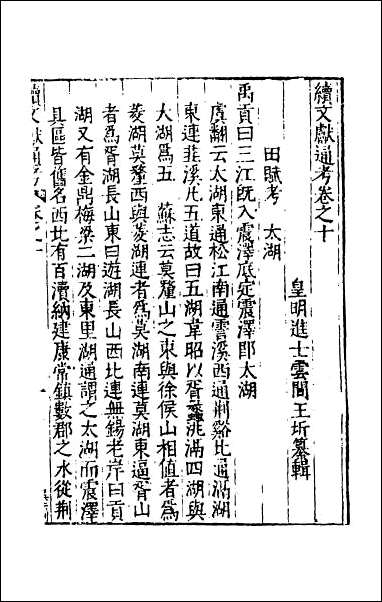 續文獻通考卷之十
皇明進士雲間王圻纂輯
田賦考　太湖
禹貢曰三江旣入震澤底定震澤卽太湖
虞翻云太湖東通松江南通霅溪西通荆谿北通滆湖
東連韭溪凡五道故曰五湖韋昭以胥蠡洮滆四湖與
大湖爲五　蘇志云莫釐山之東與徐侯山相值者爲
菱湖莫釐西與菱湖連者爲莫湖南連莫湖東逼胥山
者爲胥湖長山東曰遊湖長山西北連無錫老岸曰貢
湖又有金鼎梅梁二湖及東里湖通謂之太湖而震澤
具區皆舊名西北有百瀆納建康常鎮數郡之水從荆
續文獻通考
一